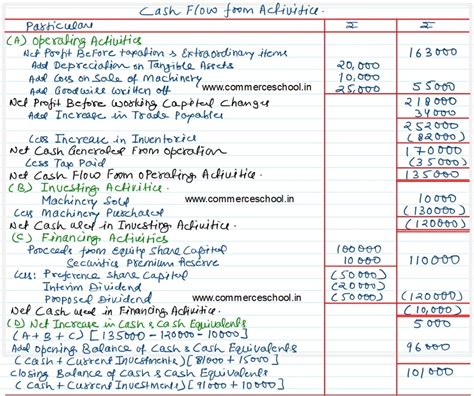 Cash Flow from Activities.
Particulars ₹ ₹
(A) Operating Activities
Net Profit Before taxation & Extraordinary items 163000
Add Depreciation on Tangible Assets 20,000
Add Loss on Sale of Machinery 10,000
Add Goodwill Written off 25,000 55000
www.commerceschool.in
Net Profit Before Working Capital Changes 218000
Add Increase in Trade Payables 34000
252000
Less Increase in Inventories (82000)
Net Cash Generated From Operation 170000
Less Tax Paid (35000)
Net Cash Flow From Operating Activities. 135000
(B) Investing Activities
www.commerceschool.in
Machinery Sold 10000
Less Machinery Purchased (130000)
Net Cash used in Investing Activities. (120000)
(C) Financing Activities
Proceeds from Equity Share Capital 100000
Securities Premium Reserve 10000 110000
Less: Preference Share Capital (50000)
Interim Dividend (20000)
www.commerceschool.in
Proposed Dividend (50000) (120000)
Net Cash used in Financing Activities. (10,000)
(D) Net Increase in Cash & Cash Equivalents 5000
(A+B+C) [135000-120000-10000]
Add opening Balance of Cash & Cash Equivalents 96000
(Cash + Current Investments) [81000 + 15000]
Closing Balance of Cash & Cash Equivalents 101000
(Cash + Current Investments) [91000 + 10000]